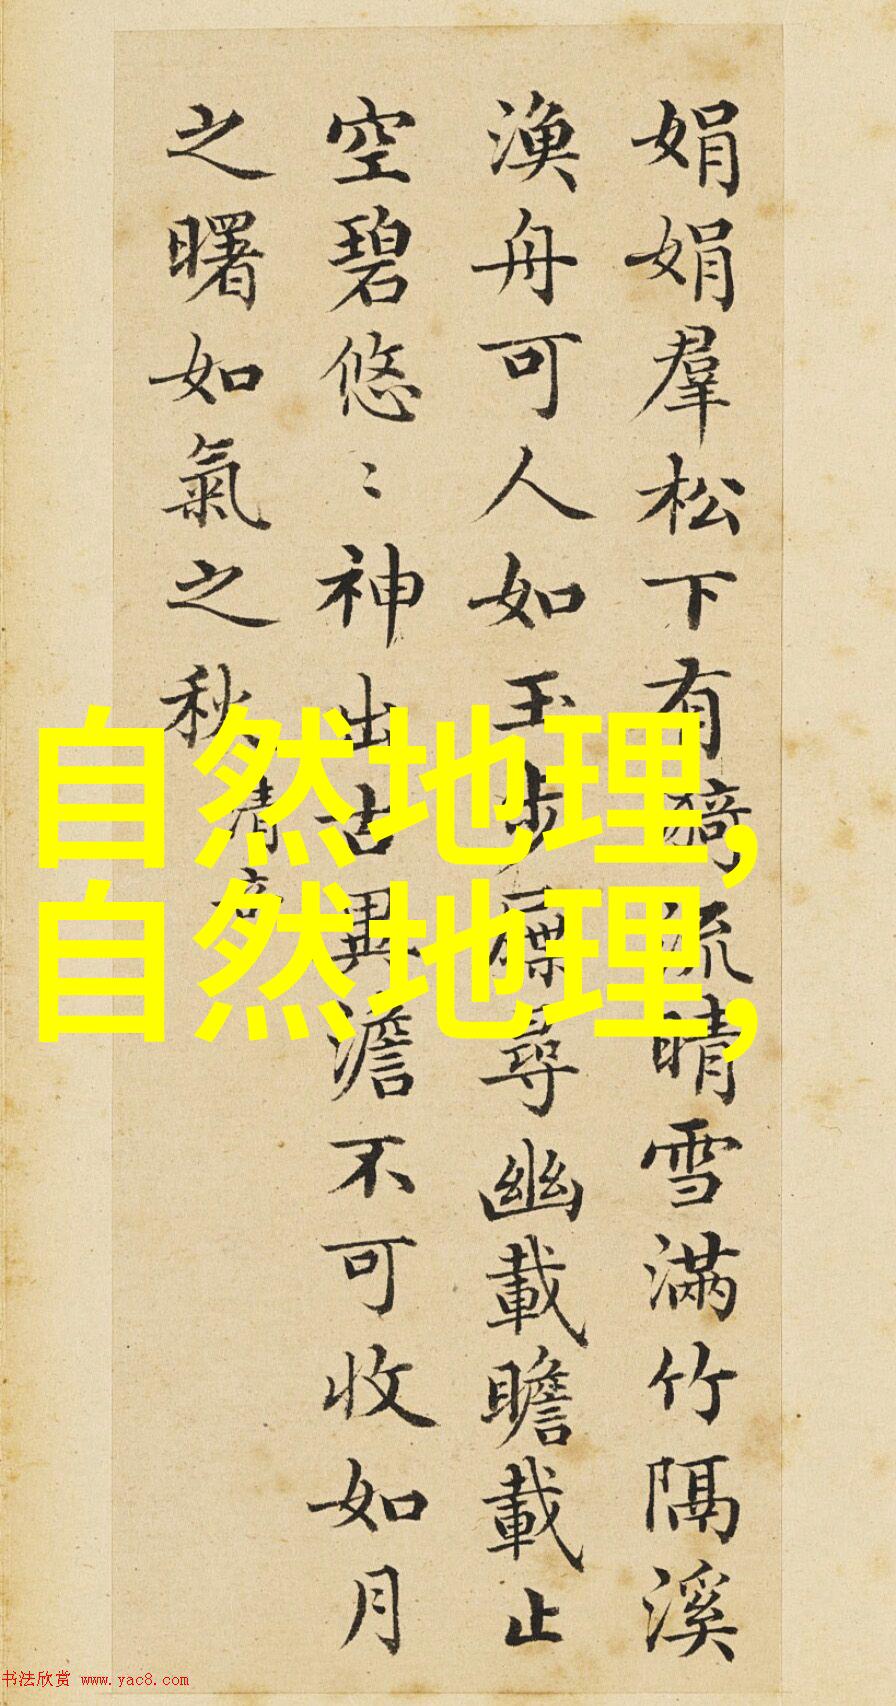 娟娟羣松下有漪流晴雪滿竹隔溪
漁舟可人如玉步屧尋幽載瞻載止
空碧悠〻神出古異澹不可收如月
之曙如氣之秋
清奇
自然地理,
自然地理,
书法欣赏 www.yac8.com